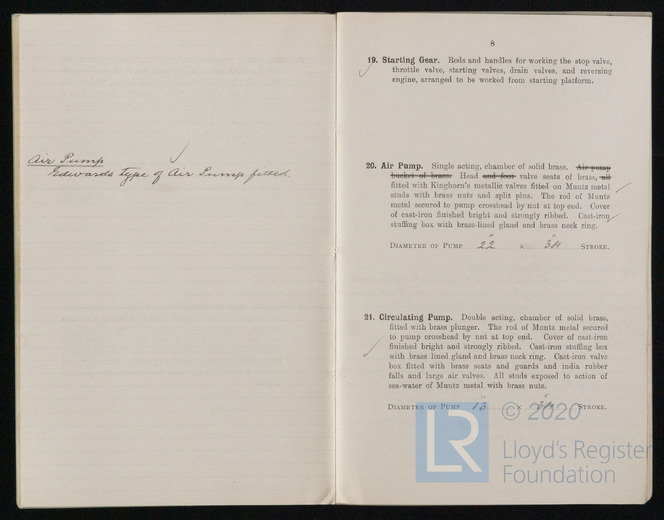 Air Pump
Edwards type of Air Pump fitted
8
19. Starting Gear. Rods and handles for working the stop valve,
throttle valve, starting valves, drain valves, and reversing
engine, arranged to be worked from starting platform.
20. Air Pump. Single acting, chamber of solid brass. Air pump
bucket of brass. Head and foot valve seats of brass, all
fitted with Kinghorn's metallic valves fitted on Muntz metal
studs with brass nuts and split pins. The rod of Muntz
metal secured to pump crosshead by nut at top end. Cover
of cast-iron finished bright and strongly ribbed. Cast-iron
stuffing box with brass-lined gland and brass neck ring.
DIAMETER OF PUMP 22" × 34" STROKE.
21. Circulating Pump. Double acting, chamber of solid brass,
fitted with brass plunger. The rod of Muntz metal secured
to pump crosshead by nut at top end. Cover of cast-iron
finished bright and strongly ribbed. Cast-iron stuffing box
with brass lined gland and brass neck ring. Cast-iron valve
box fitted with brass seats and guards and india rubber
falls and large air valves. All studs exposed to action of
sea-water of Muntz metal with brass nuts.
DIAMETER OF PUMP 13" × 34" STROKE.
LR
© 2020
Lloyd's Register
Foundation